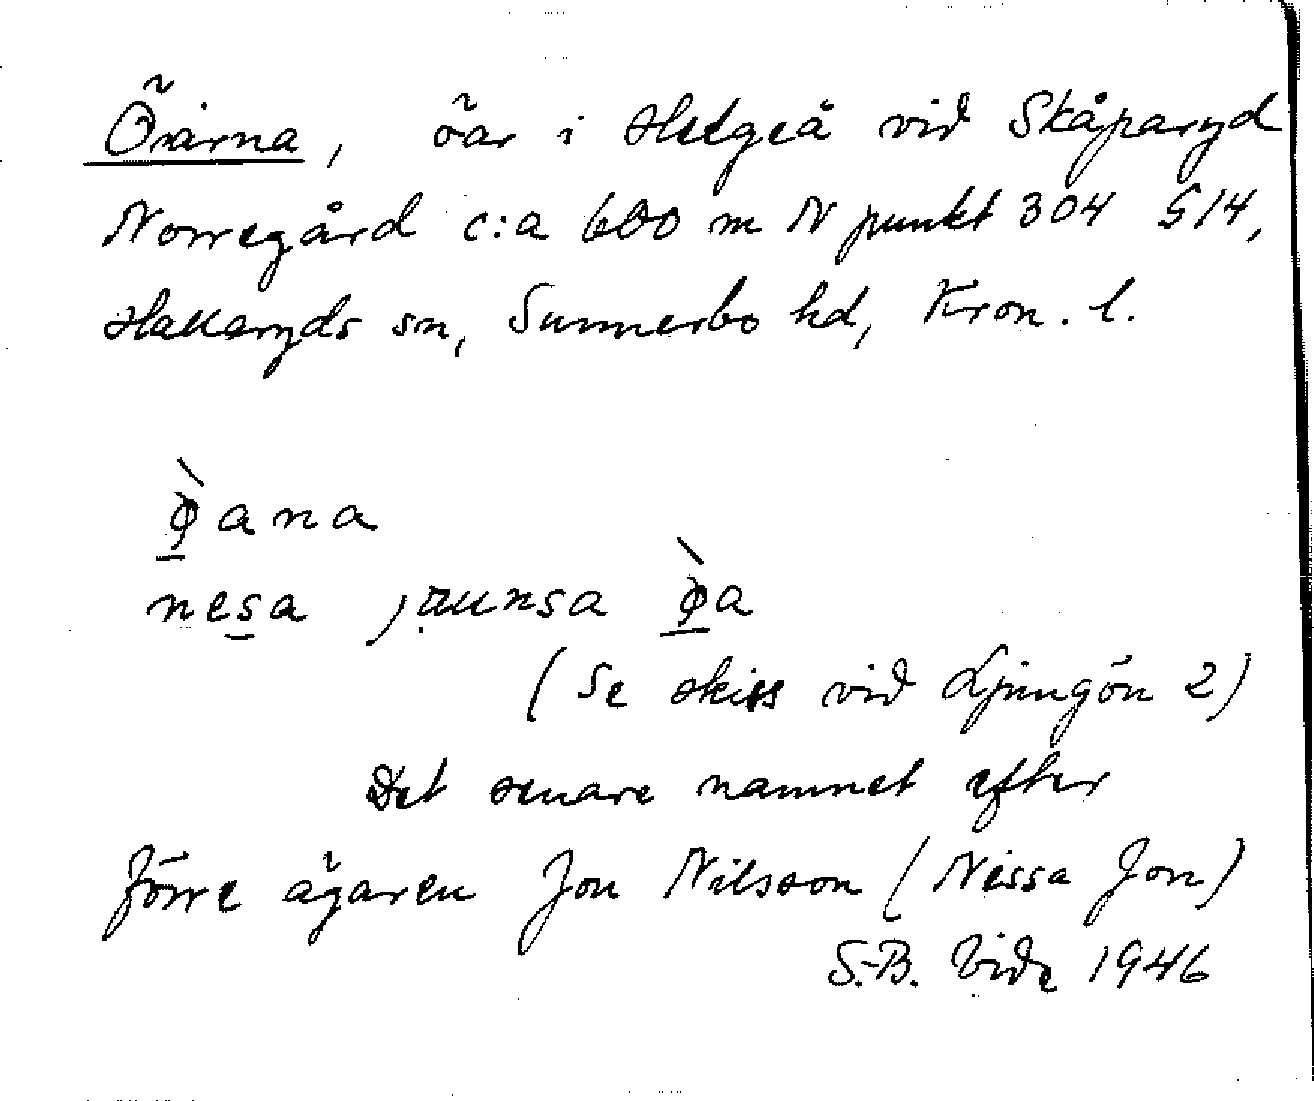 Öarna, öar i Helgeå vid Skåparyd
Norregård c:a 600 m N punkt 304 514,
Hallaryds sn, Sunnerbo hd, Kron. l.
ø̀ana
nesa jaunsa ø̀a
(Se skiss vid Ljungön 2)
Det senare namnet efter
förre ägaren Jon Nilsson (Nissa Jon)
S.-B. Vide 1946